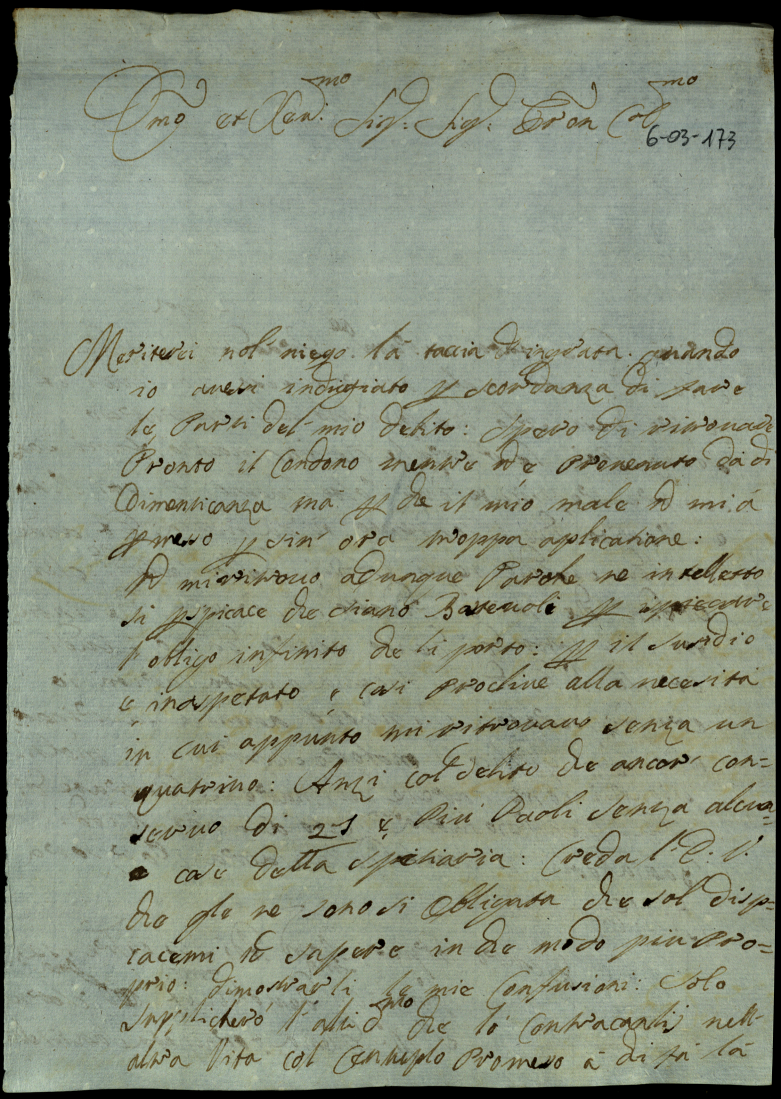 et Rev: mo Sig: Sig: Pron Col mo
6-03-173
Meriterei nol niego la taccia d'ingrata quando
io avesi indugiato p scordanza di fare
le Parti del mio debito: Spero di ritrovare
Pronto il Condono mentre ne Provenuto da di
Dimenticanza ma p che il mio male no mi á
p sin ora troppa aplicatione:
No mi ritrovo adunque Parole ne intelletto
si pspicace che siano Bastevoli p
l'obligo infinito che li porto: p il susidio
e inaspetato e cosi Proclive alla necesità
in cui appunto mi ritrovavo senza un
quatrino: Anzi col debito che ancor con=
servo di e Più Paoli senza alcu=
e cose della spetiaria: Creda
che gle ne sono si obbligata che sol disp=
cacemi no sapere in che modo piu Pro=
prio: dimostrarli le mie Confusioni: Solo
Suplicherò l'altis mo che lo Contracanbi nell
altra Vita col Centuplo Promeso á di fá la